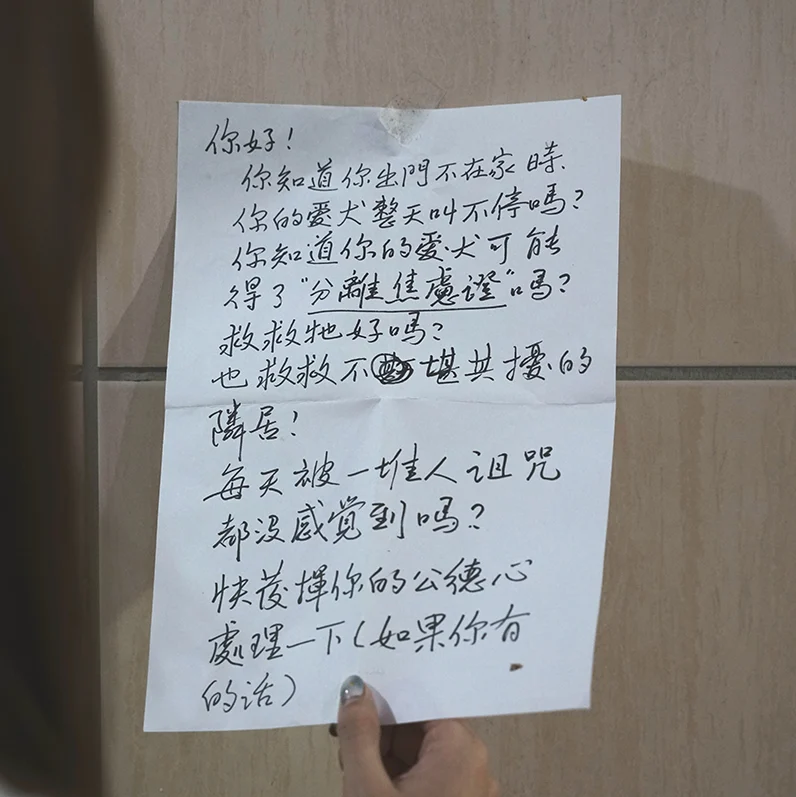 你好！
你知道你出門不在家時
你的愛犬整天叫不停嗎？
你知道你的愛犬可能
得了"分離焦慮證"嗎？
救救牠好嗎？
也救救不堪其擾的
隣居！
每天被一堆人詛咒
都沒感覚到嗎？
快發揮你的公德心
處理一下(如果你有
的话)